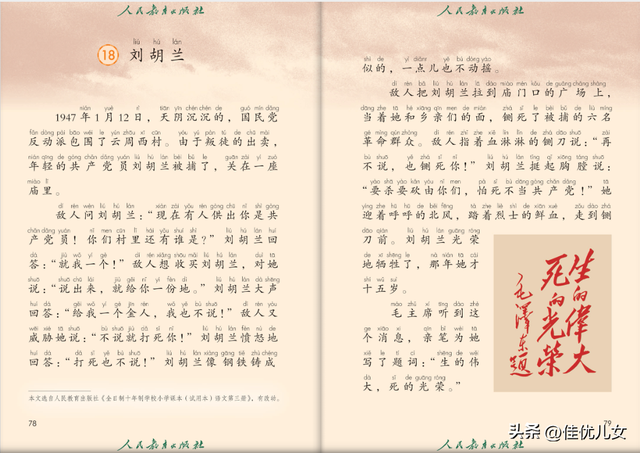 人民教育出版社
18 刘胡兰
1947年1月12日，天阴沉沉的，国民党
反动派包围了云周西村。由于叛徒的出卖，
年轻的共产党员刘胡兰被捕了，关在一座
庙里。
敌人问刘胡兰：“现在有人供出你是共
产党员！你们村里还有谁是？”刘胡兰回
答：“就我一个！”敌人想收买刘胡兰，对她
说：“说出来，就给你一份地。”刘胡兰大声
回答：“给我一个金人，我也不说！”敌人又
威胁她说：“不说就打死你！”刘胡兰愤怒地
回答：“打死也不说！”刘胡兰像钢铁铸成
本文选自人民教育出版社《全日制十年制学校小学课本（试用本）语文第三册》，有改动。
78
人民教育出版社
人民教育出版社
似的，一点儿也不动摇。
敌人把刘胡兰拉到庙门口的广场上，
当着她和乡亲们的面，铡死了被捕的六名
革命群众。敌人指着血淋淋的铡刀说：“再
不说，也铡死你！”刘胡兰挺起胸膛说：
“要杀要砍由你们，怕死不当共产党！”她
迎着呼呼的北风，踏着烈士的鲜血，走到铡
刀前。刘胡兰光荣
地牺牲了，那年她才
十五岁。
毛主席听到这
个消息，亲笔为她
写了题词：“生的伟
大，死的光荣。”
生的偉大
死的光榮
毛澤東題
79
人民教育出版社
头条 @佳优儿女